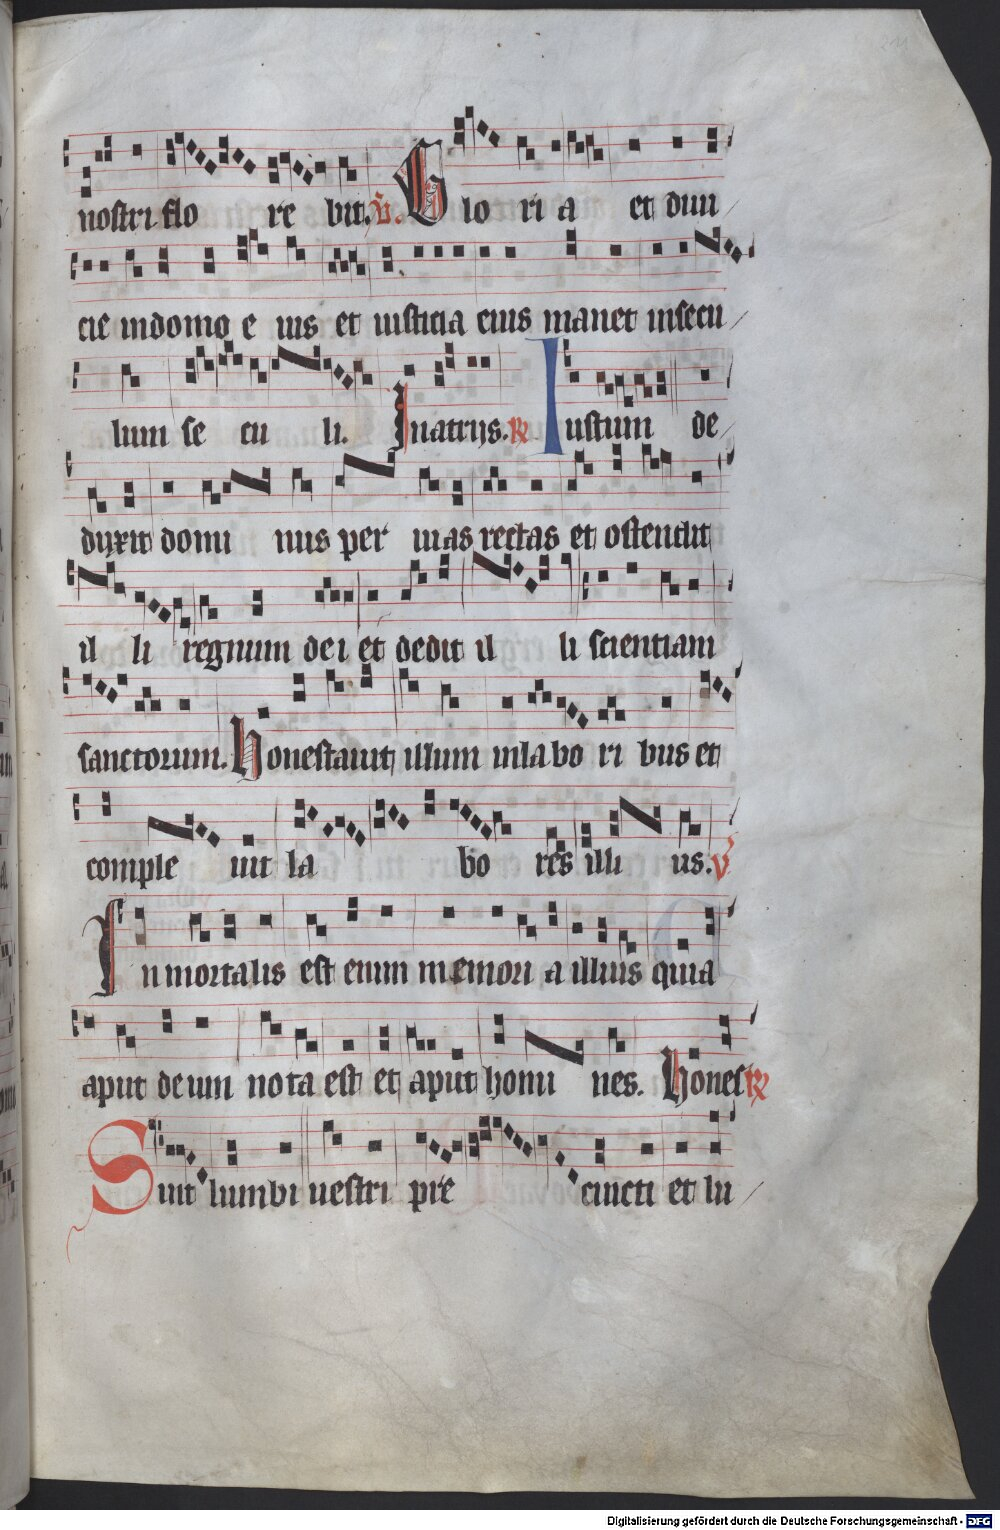 nostri flo re bit. V. Glo ri a et diui
cie in domo e ius et iusticia eius manet in secu
lum se cu li. In atrijs. R Iustum de
duxit domi nus per uias rectas et ostendit
il li regnum dei et dedit il li scientiam
sanctorum. Honestauit illum in labo ri bus et
comple uit la bo res illi us. V
Inmortalis est enim memori a illius quia
aput deum nota est et aput homi nes. Hones R
Sint lumbi uestri pre cincti et lu
Digitalisierung gefördert durch die Deutsche Forschungsgemeinschaft - DFG